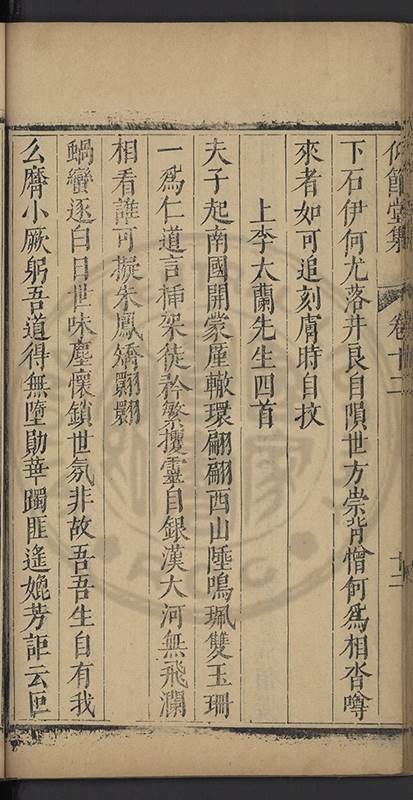 仰節堂集 卷十二 十二
下石伊何尤落井良自隕世方崇背憎何爲相沓噂
來者如可追刻膚時自抆
上李太蘭先生四首
夫子起南國開蒙厪轍環翩翩西山陲鳴珮雙玉珊
一爲仁道言揷架徒矜繁攫霧自銀漢大河無飛瀾
相看誰可擬朱鳳矯翾翾
蝸蠻逐白日世味塵懷鎖世氛非故吾吾生自有我
么膺小厥躬吾道得無墮勛華躅匪遙娩芳詎云叵